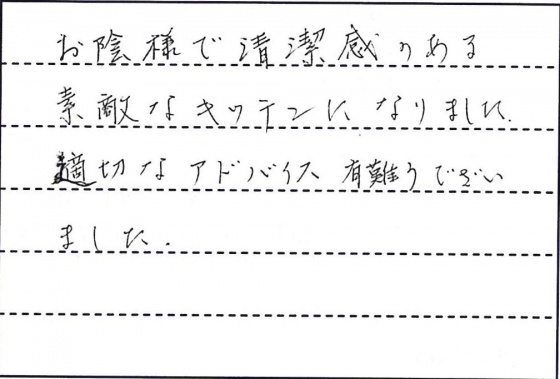 お陰様で清潔感のある
素敵なキッチンになりました.
適切なアドバイス 有難うござい
ました.